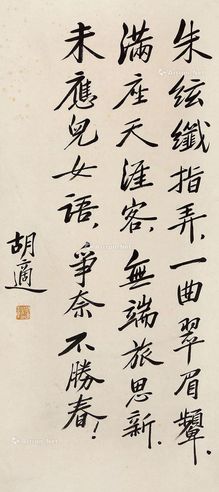 朱絃纖指弄，一曲翠眉顰．
滿座天涯客，無端旅思新．
未應兒女語，爭奈不勝春！
胡適